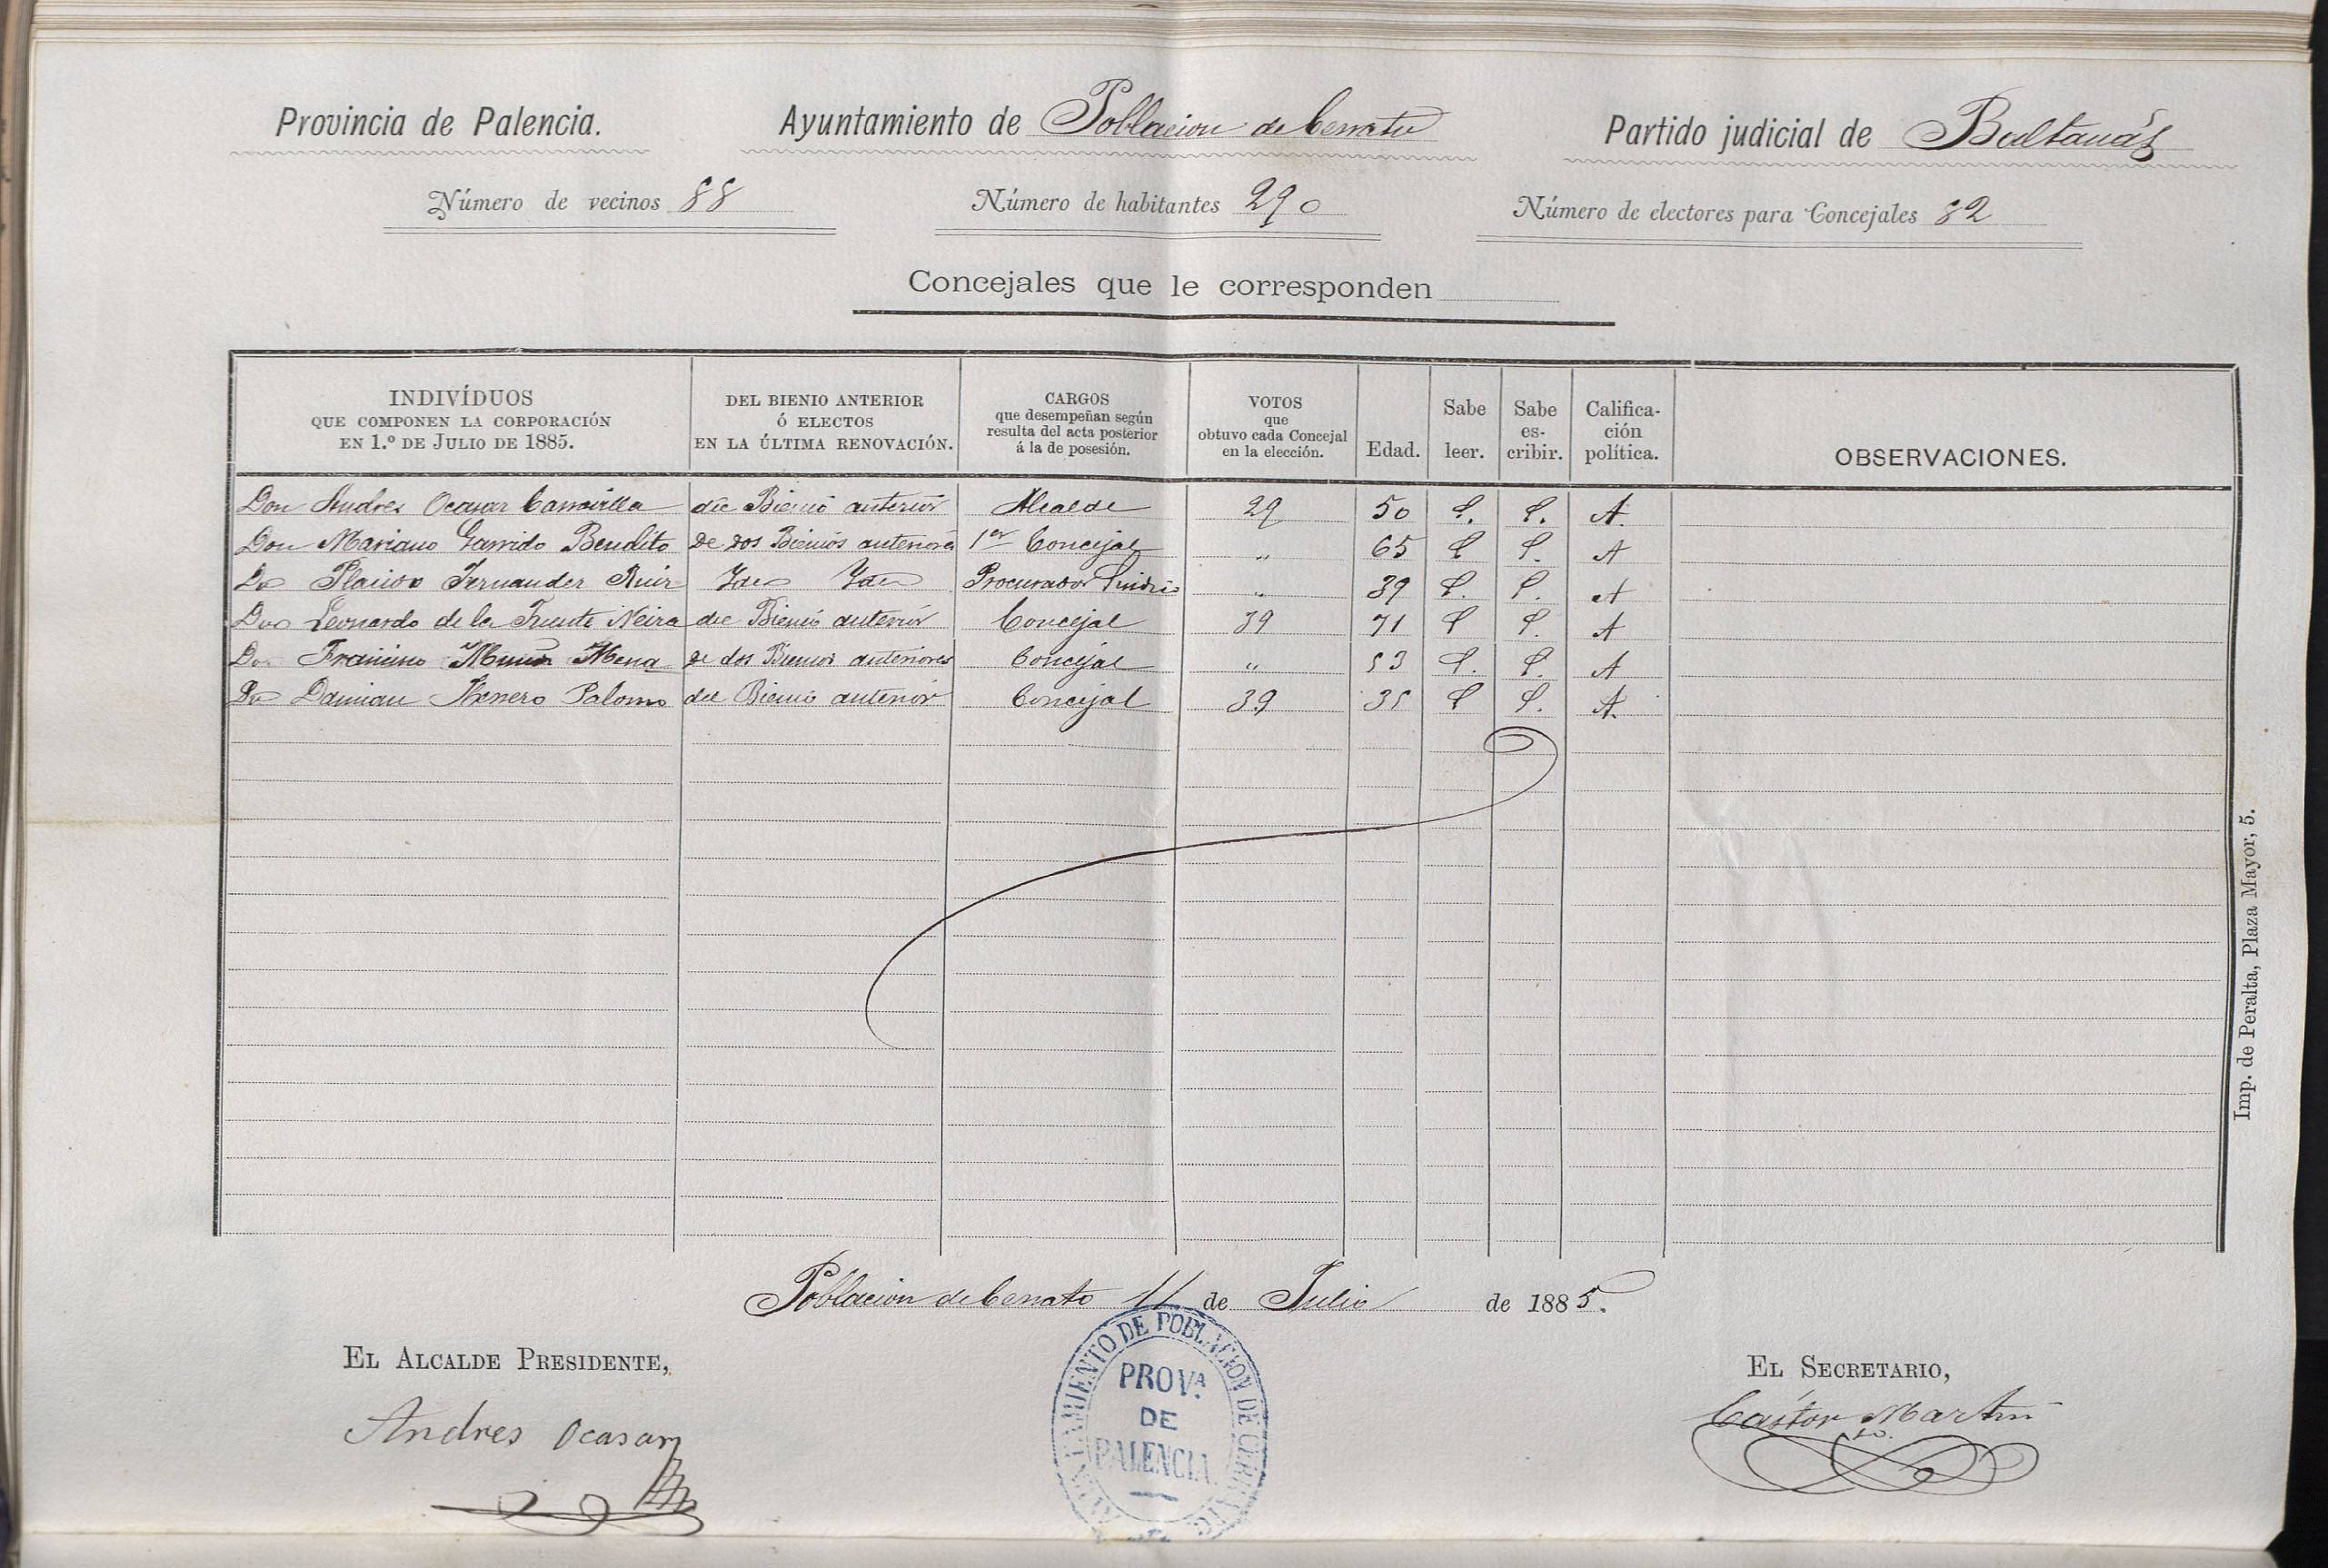 Provincia de Palencia. Ayuntamiento de Poblacion de Cerrato Partido judicial de Baltanás
Número de vecinos 88 Número de habitantes 290 Número de electores para Concejales 82
Concejales que le corresponden
INDIVÍDUOS QUE COMPONEN LA CORPORACIÓN EN 1.º DE JULIO DE 1885. DEL BIENIO ANTERIOR Ó ELECTOS EN LA ÚLTIMA RENOVACIÓN. CARGOS que desempeñan según resulta del acta posterior á la de posesión. VOTOS que obtuvo cada Concejal en la elección. Edad. Sabe leer. Sabe escribir. Califica-ción política. OBSERVACIONES.
Don Andres Ocasar del Bienio anterior Alcalde 29 50 S. S. A.
Don Mariano Garrido Bendito de dos Bienios anteriores 1er Concejal " 65 S S. A
Dn Placido Fernandez Ruiz Iden Iden Procurador Sindico " 39 S. S. A
Don Leonardo de la Fuente Neira del Bienio anterior Concejal 39 71 S S. A
Don Mena de dos Bienios anteriores Concejal " 53 S. S. A
Dn Damian Herrero Palomo del Bienio anterior Concejal 39 35 S S. A.
Poblacion de Cerrato 11 de Julio de 1885.
EL ALCALDE PRESIDENTE,
Andres Ocasar
AYUNTAMIENTO DE POBLACION DE CERRATO
PROV.A
DE
PALENCIA
EL SECRETARIO,
Castor Martin
Imp. de Peralta, Plaza Mayor, 5.